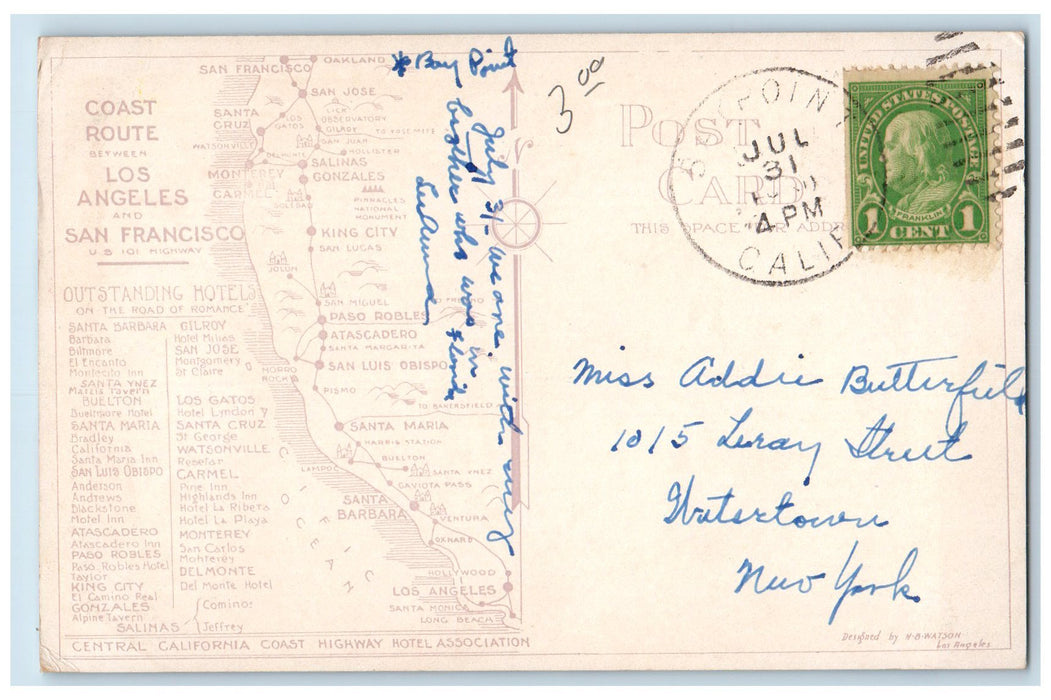 COAST
ROUTE
BETWEEN
LOS
ANGELES
AND
SAN FRANCISCO
U.S. 101 HIGHWAY
OUTSTANDING HOTELS
ON THE ROAD OF ROMANCE
SANTA BARBARA
Barbara
Biltmore
El Encanto
Montecito Inn
SANTA YNEZ
Mattei's Tavern
BUELTON
Buelmore Hotel
SANTA MARIA
Bradley
California
Santa Maria Inn
SAN LUIS OBISPO
Anderson
Andrews
Blackstone
Motel Inn
ATASCADERO
Atascadero Inn
PASO ROBLES
Paso Robles Hotel
Taylor
KING CITY
El Camino Real
GONZALES
Alpine Tavern
SALINAS { Cominos
Jeffrey
GILROY
Hotel Milias
SAN JOSE
Montgomery
St Claire
LOS GATOS
Hotel Lyndon
SANTA CRUZ
St George
WATSONVILLE
Resetar
CARMEL
Pine Inn
Highlands Inn
Hotel La Ribera
Hotel La Playa
MONTEREY
San Carlos
Monterey
DELMONTE
Del Monte Hotel
CENTRAL CALIFORNIA COAST HIGHWAY HOTEL ASSOCIATION
SAN FRANCISCO
OAKLAND
SAN JOSE
SANTA
CRUZ
LOS
GATOS
LICK
OBSERVATORY
GILROY
TO YOSEMITE
WATSONVILLE
SAN JUAN
HOLLISTER
DELMONTE
SALINAS
MONTEREY
GONZALES
CARMEL
SOLEDAD
PINNACLES
NATIONAL
MONUMENT
KING CITY
SAN LUCAS
JOLON
SAN MIGUEL
TO FRESNO
PASO ROBLES
ATASCADERO
SANTA MARGARITA
SAN LUIS OBISPO
MORRO
ROCK
PISMO
TO BAKERSFIELD
SANTA MARIA
HARRIS STATION
BUELTON
LAMPOC
SANTA YNEZ
GAVIOTA PASS
SANTA
BARBARA
VENTURA
OXNARD
HOLLYWOOD
LOS ANGELES
SANTA MONICA
LONG BEACH
PACIFIC
OCEAN
* Bay Point
July 31 - we are with my
brother who was in
Florida
LuAnna
3.00
POST
CARD
THIS SPACE FOR ADDR
BAY POIN
JUL
31
4 PM
CALIF
UNITED STATES POSTAGE
FRANKLIN
1 CENT 1
Miss Addie Butterfield
1015 Leray Street
Watertown
New York
Designed by H-B-WATSON
Los Angeles